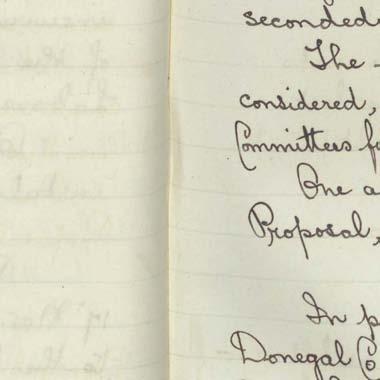 seconded
The
considered,
Committees f
One a
Proposal,
In p
Donegal Co